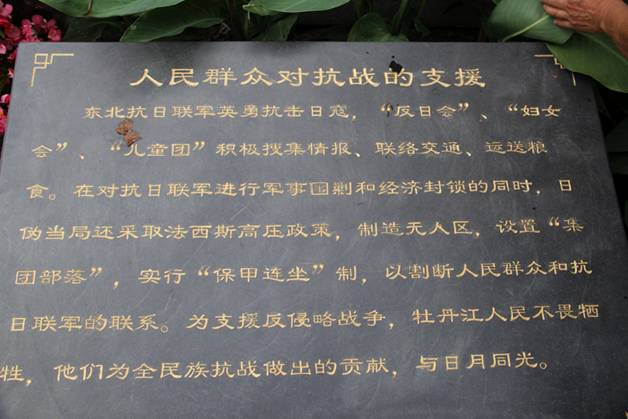 人民群众对抗战的支援
东北抗日联军英勇抗击日寇，“反日会”、“妇女
会”、“儿童团”积极搜集情报、联络交通、运送粮
食。在对抗日联军进行军事围剿和经济封锁的同时，日
伪当局还采取法西斯高压政策，制造无人区，设置“集
团部落”，实行“保甲连坐”制，以割断人民群众和抗
日联军的联系。为支援反侵略战争，牡丹江人民不畏牺
牲，他们为全民族抗战做出的贡献，与日月同光。